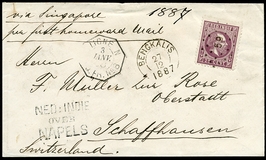 via Singapore 1887
per first homeward Mail
LIGNE N
BENGKALIS
27
12
1887
Herrn
F. Müller zur Rose
Oberstadt
NED: INDIE
OVER
NAPELS
Schaffhausen
Switzerland.